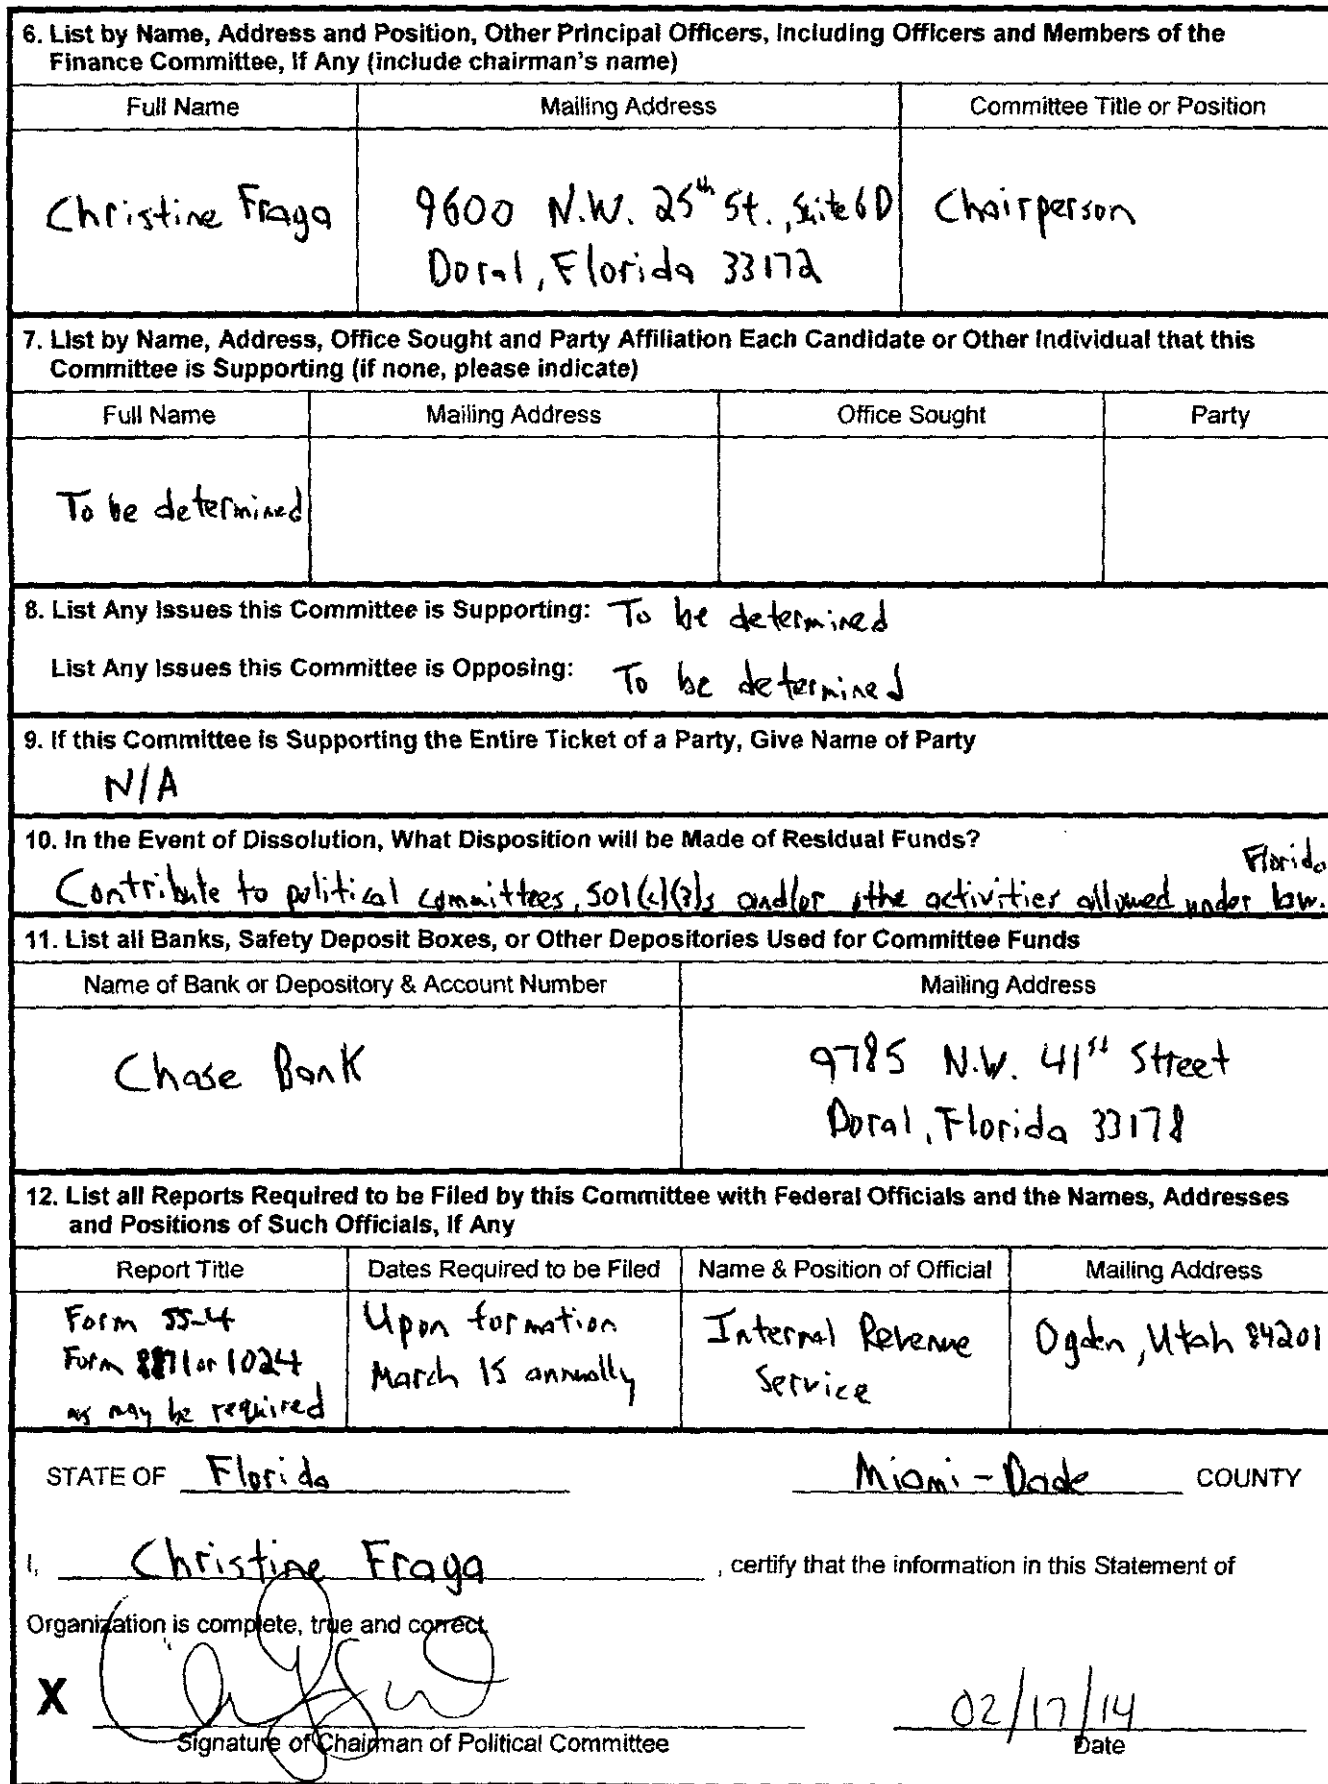 6. List by Name, Address and Position, Other Principal Officers, Including Officers and Members of the
Finance Committee, If Any (include chairman's name)
Full Name Mailing Address Committee Title or Position
Christine Fraga 9600 N.W. 25th St., Suite 6D Chairperson
Doral, Florida 33172
7. List by Name, Address, Office Sought and Party Affiliation Each Candidate or Other Individual that this
Committee is Supporting (if none, please indicate)
Full Name Mailing Address Office Sought Party
To be determined
8. List Any Issues this Committee is Supporting: To be determined
List Any Issues this Committee is Opposing: To be determined
9. If this Committee is Supporting the Entire Ticket of a Party, Give Name of Party
N/A
10. In the Event of Dissolution, What Disposition will be Made of Residual Funds?
Florida
Contribute to political committees, 501(c)(3)s and/or activities allowed under law.
11. List all Banks, Safety Deposit Boxes, or Other Depositories Used for Committee Funds
Name of Bank or Depository & Account Number Mailing Address
Chase Bank 9785 N.W. 41st Street
Doral, Florida 33178
12. List all Reports Required to be Filed by this Committee with Federal Officials and the Names, Addresses
and Positions of Such Officials, If Any
Report Title Dates Required to be Filed Name & Position of Official Mailing Address
Form SS-4 Upon formation Internal Revenue Ogden, Utah 84201
Form 8871 or 1024 March 15 annually Service
as may be required
STATE OF Florida Miami-Dade COUNTY
I, Christine Fraga , certify that the information in this Statement of
Organization is complete, true and correct.
X
02/17/14
Signature of Chairman of Political Committee Date